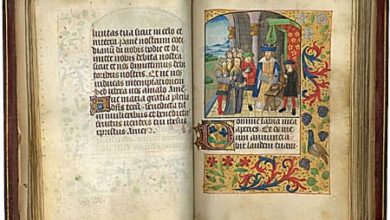 luntas tua sicut in celo et
in terra Panē nostrum coti
dianū da nobis hodie et di
mitte nobis debita nostra
sicut et nos dimittimus
debitoribus nostris Et ne nos
inducas in temptationem
sed libera nos a malo Amē
Aue maria gratia plena
dn̄s tecū benedicta tu
in mulieribus et benedict
fructus ventris tui ihesus
cristus Amen
Domine labia mea
aperies Et os me
um annuncia
bit laudem tuam